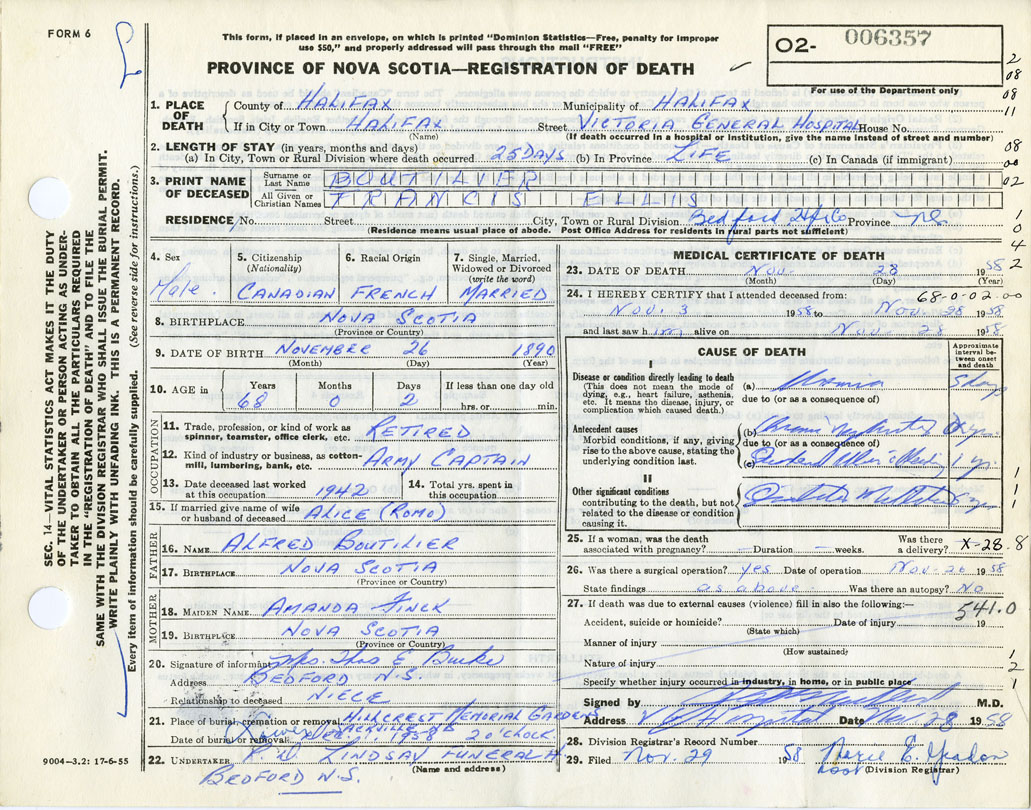 FORM 6
This form, if placed in an envelope, on which is printed "Dominion Statistics—Free, penalty for improper
use $50," and properly addressed will pass through the mail "FREE"
PROVINCE OF NOVA SCOTIA—REGISTRATION OF DEATH
O2- 006357
For use of the Department only
2
08
08
11
08
00
02
1
0
4
2
SEC. 14—VITAL STATISTICS ACT MAKES IT THE DUTY
OF THE UNDERTAKER OR PERSON ACTING AS UNDER-
TAKER TO OBTAIN ALL THE PARTICULARS REQUIRED
IN THE "REGISTRATION OF DEATH" AND TO FILE THE
SAME WITH THE DIVISION REGISTRAR WHO SHALL ISSUE THE BURIAL PERMIT.
WRITE PLAINLY WITH UNFADING INK. THIS IS A PERMANENT RECORD.
Every item of information should be carefully supplied. (See reverse side for instructions.)
1. PLACE OF DEATH
County of HALIFAX Municipality of HALIFAX
If in City or Town HALIFAX Street VICTORIA GENERAL HOSPITAL House No.
(Name) (If death occurred in a hospital or institution, give the name instead of street and number)
2. LENGTH OF STAY (in years, months and days)
(a) In City, Town or Rural Division where death occurred 25 DAYS (b) In Province LIFE (c) In Canada (if immigrant)
3. PRINT NAME OF DECEASED
Surname or Last Name BOUTILIER
All Given or Christian Names FRANCIS ELLIS
RESIDENCE No. Street City, Town or Rural Division Bedford Hfx Co Province NS
(Residence means usual place of abode. Post Office Address for residents in rural parts not sufficient)
4. Sex Male.
5. Citizenship (Nationality) CANADIAN
6. Racial Origin FRENCH
7. Single, Married, Widowed or Divorced (write the word) MARRIED
8. BIRTHPLACE NOVA SCOTIA
(Province or Country)
9. DATE OF BIRTH NOVEMBER 26 1890
(Month) (Day) (Year)
10. AGE in Years 68 Months 0 Days 2 If less than one day old hrs. or min.
OCCUPATION
11. Trade, profession, or kind of work as spinner, teamster, office clerk, etc. RETIRED
12. Kind of industry or business, as cotton-mill, lumbering, bank, etc. ARMY CAPTAIN
13. Date deceased last worked at this occupation 1942 14. Total yrs. spent in this occupation
15. If married give name of wife or husband of deceased ALICE (ROMO)
FATHER
16. NAME ALFRED BOUTILIER
17. BIRTHPLACE NOVA SCOTIA
(Province or Country)
MOTHER
18. MAIDEN NAME AMANDA FINCK
19. BIRTHPLACE NOVA SCOTIA
(Province or Country)
20. Signature of informant Mrs. Thos E Burke
Address BEDFORD N.S.
Relationship to deceased NIECE
21. Place of burial, cremation or removal HILLCREST MEMORIAL GARDENS
(Lower SACKVILLE NS
Date of burial or removal DEC. 1, 1958 2 O'CLOCK.
22. UNDERTAKER LINDSAY FUNERAL H
(Name and address)
BEDFORD N.S.
9004-3.2: 17-6-55
MEDICAL CERTIFICATE OF DEATH
23. DATE OF DEATH Nov. 28 1958
(Month) (Day) (Year)
24. I HEREBY CERTIFY that I attended deceased from: 68-0-02.00
Nov. 3 1958 to Nov. 28 1958
and last saw him alive on Nov. 28 1958
CAUSE OF DEATH
Approximate interval between onset and death
I
Disease or condition directly leading to death
(This does not mean the mode of dying, e.g., heart failure, asthenia, etc. It means the disease, injury, or complication which caused death.)
(a) Uremia
due to (or as a consequence of)
Antecedent causes
Morbid conditions, if any, giving rise to the above cause, stating the underlying condition last.
(b)
due to (or as a consequence of)
(c) 1 yr.
II
Other significant conditions
contributing to the death, but not related to the disease or condition causing it.
1
1
1
25. If a woman, was the death associated with pregnancy? Duration weeks. Was there a delivery? X-28.8
26. Was there a surgical operation? yes Date of operation Nov. 26 1958
State findings as above Was there an autopsy? No
27. If death was due to external causes (violence) fill in also the following:— 541.0
Accident, suicide or homicide? Date of injury 19
(State which)
Manner of injury
(How sustained)
Nature of injury
Specify whether injury occurred in industry, in home, or in public place
1
2
1
Signed by M.D.
Address V G Hospital Date Nov 28 1958
28. Division Registrar's Record Number
29. Filed Nov. 29 1958 Marie E.
(Division Registrar)